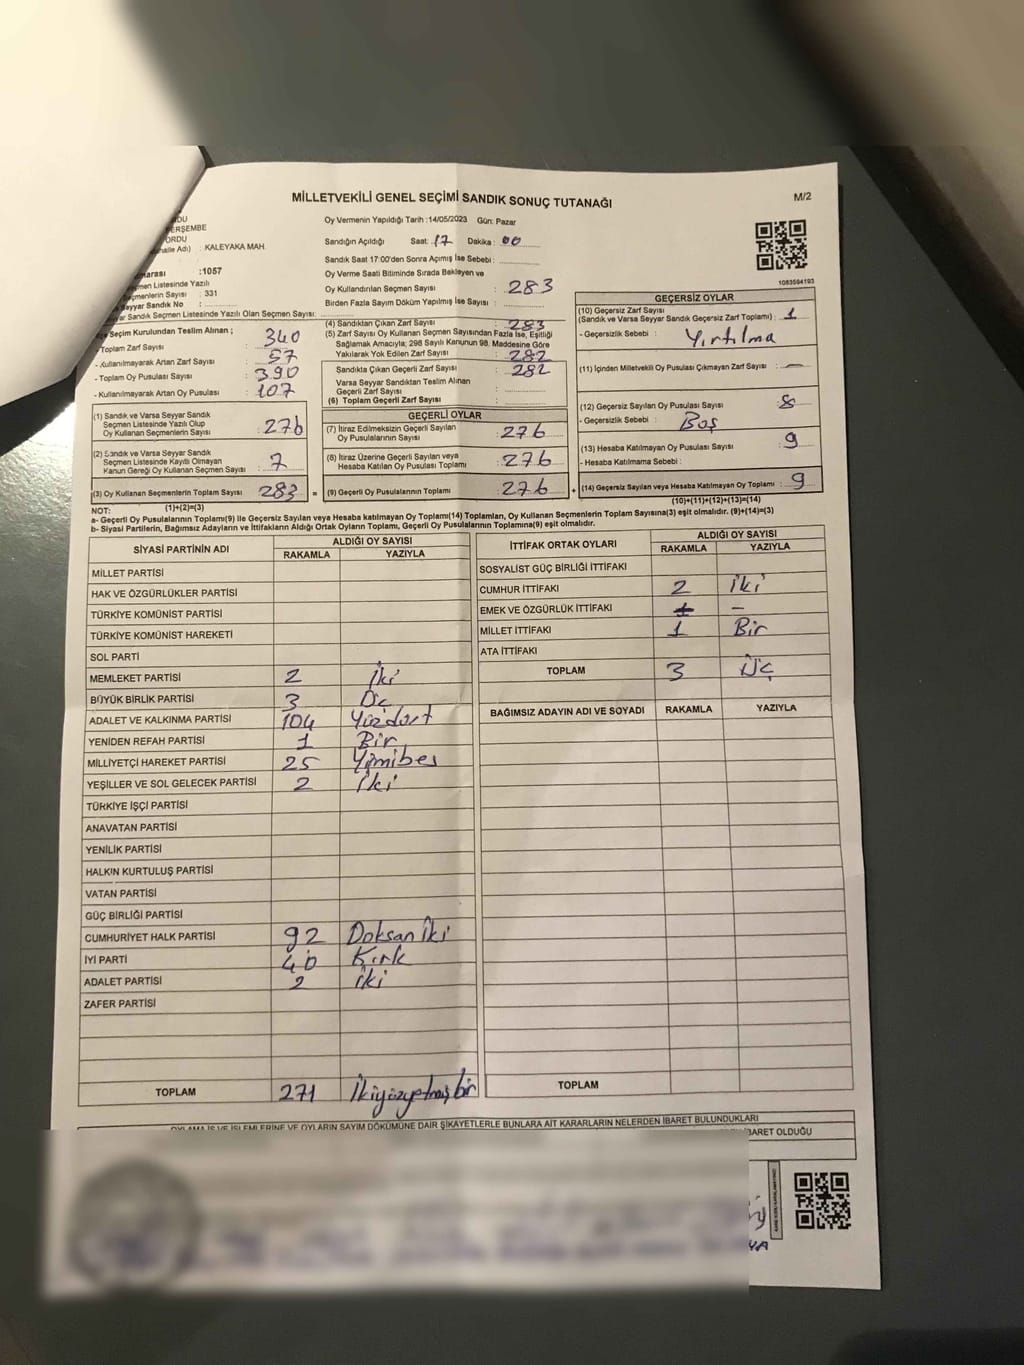 MİLLETVEKİLİ GENEL SEÇİMİ SANDIK SONUÇ TUTANAĞI
M/2
Oy Vermenin Yapıldığı Tarih : 14/05/2023 Gün: Pazar
ORDU
KALEYAKA MAH.
Sandığın Açıldığı Saat: 17 Dakika : 00
Sandık Saat 17:00'den Sonra Açımış İse Sebebi :
:1057
: 331
Sayyar Sandık No :
Sandık Seçmen Listesinde Yazılı Olan Seçmen Sayısı:
Oy Verme Saati Bitiminde Sırada Bekleyen ve
Oy Kullandırılan Seçmen Sayısı : 283
Birden Fazla Sayım Döküm Yapılmış İse Sayısı :
Seçim Kurulundan Teslim Alınan ;
- Toplam Zarf Sayısı : 340
- Kullanılmayarak Artan Zarf Sayısı : 57
- Toplam Oy Pusulası Sayısı : 390
- Kullanılmayarak Artan Oy Pusulası : 107
(1) Sandık ve Varsa Seyyar Sandık
Seçmen Listesinde Yazılı Olup
Oy Kullanan Seçmenlerin Sayısı : 276
(2) Sandık ve Varsa Seyyar Sandık
Seçmen Listesinde Kayıtlı Olmayan
Kanun Gereği Oy Kullanan Seçmen Sayısı : 7
(3) Oy Kullanan Seçmenlerin Toplam Sayısı 283 =
(1)+(2)=(3)
(4) Sandıktan Çıkan Zarf Sayısı : 283
(5) Zarf Sayısı Oy Kullanan Seçmen Sayısından Fazla İse, Eşitliği
Sağlamak Amacıyla; 298 Sayılı Kanunun 98. Maddesine Göre
Yakılarak Yok Edilen Zarf Sayısı : 282
Sandıkta Çıkan Geçerli Zarf Sayısı : 282
Varsa Seyyar Sandıktan Teslim Alınan
Geçerli Zarf Sayısı :
(6) Toplam Geçerli Zarf Sayısı :
GEÇERLİ OYLAR
(7) İtiraz Edilmeksizin Geçerli Sayılan
Oy Pusulalarının Sayısı : 276
(8) İtiraz Üzerine Geçerli Sayılan veya
Hesaba Katılan Oy Pusulası Toplamı : 276
(9) Geçerli Oy Pusulalarının Toplamı : 276 +
1083504193
GEÇERSİZ OYLAR
(10) Geçersiz Zarf Sayısı
(Sandık ve Varsa Seyyar Sandık Geçersiz Zarf Toplamı) : 1
- Geçersizlik Sebebi : Yırtılma
(11) İçinden Milletvekili Oy Pusulası Çıkmayan Zarf Sayısı : —
(12) Geçersiz Sayılan Oy Pusulası Sayısı : 8
- Geçersizlik Sebebi : Boş
(13) Hesaba Katılmayan Oy Pusulası Sayısı : 9
- Hesaba Katılmama Sebebi :
(14) Geçersiz Sayılan veya Hesaba Katılmayan Oy Toplamı : 9
(10)+(11)+(12)+(13)=(14)
NOT:
a- Geçerli Oy Pusulalarının Toplamı(9) ile Geçersiz Sayılan veya Hesaba Katılmayan Oy Toplamı(14) Toplamları, Oy Kullanan Seçmenlerin Toplam Sayısına(3) eşit olmalıdır. (9)+(14)=(3)
b- Siyasi Partilerin, Bağımsız Adayların ve İttifakların Aldığı Ortak Oyların Toplamı, Geçerli Oy Pusulalarının Toplamına(9) eşit olmalıdır.
SİYASİ PARTİNİN ADI ALDIĞI OY SAYISI
RAKAMLA YAZIYLA
MİLLET PARTİSİ
HAK VE ÖZGÜRLÜKLER PARTİSİ
TÜRKİYE KOMÜNİST PARTİSİ
TÜRKİYE KOMÜNİST HAREKETİ
SOL PARTİ
MEMLEKET PARTİSİ 2 İki
BÜYÜK BİRLİK PARTİSİ 3 Üç
ADALET VE KALKINMA PARTİSİ 104 Yüzdört
YENİDEN REFAH PARTİSİ 1 Bir
MİLLİYETÇİ HAREKET PARTİSİ 25 Yirmibeş
YEŞİLLER VE SOL GELECEK PARTİSİ 2 İki
TÜRKİYE İŞÇİ PARTİSİ
ANAVATAN PARTİSİ
YENİLİK PARTİSİ
HALKIN KURTULUŞ PARTİSİ
VATAN PARTİSİ
GÜÇ BİRLİĞİ PARTİSİ
CUMHURİYET HALK PARTİSİ 92 Doksan İki
İYİ PARTİ 40 Kırk
ADALET PARTİSİ 2 iki
ZAFER PARTİSİ
TOPLAM 271 İkiyüzyetmişbir
İTTİFAK ORTAK OYLARI ALDIĞI OY SAYISI
RAKAMLA YAZIYLA
SOSYALİST GÜÇ BİRLİĞİ İTTİFAKI
CUMHUR İTTİFAKI 2 İki
EMEK VE ÖZGÜRLÜK İTTİFAKI 1 —
MİLLET İTTİFAKI 1 Bir
ATA İTTİFAKI
TOPLAM 3 Üç
BAĞIMSIZ ADAYIN ADI VE SOYADI RAKAMLA YAZIYLA
TOPLAM
OYLAMA İŞ VE İŞLEMLERİNE VE OYLARIN SAYIM DÖKÜMÜNE DAİR ŞİKAYETLERLE BUNLARA AİT KARARLARIN NELERDEN İBARET BULUNDUKLARI
İBARET OLDUĞU